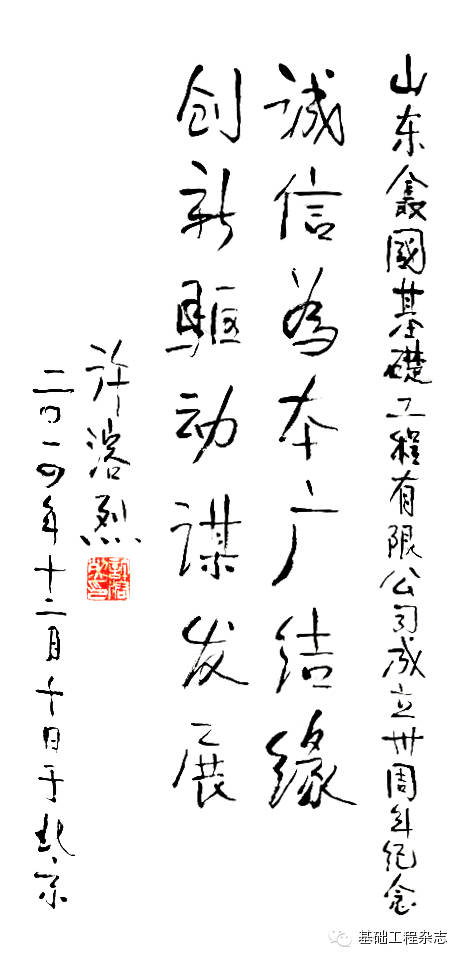 山东鑫國基礎工程有限公司成立卅周年纪念
诚信為本广结缘
创新驱动谋发展
许溶烈
二〇一四年十二月十日于北京
基础工程杂志